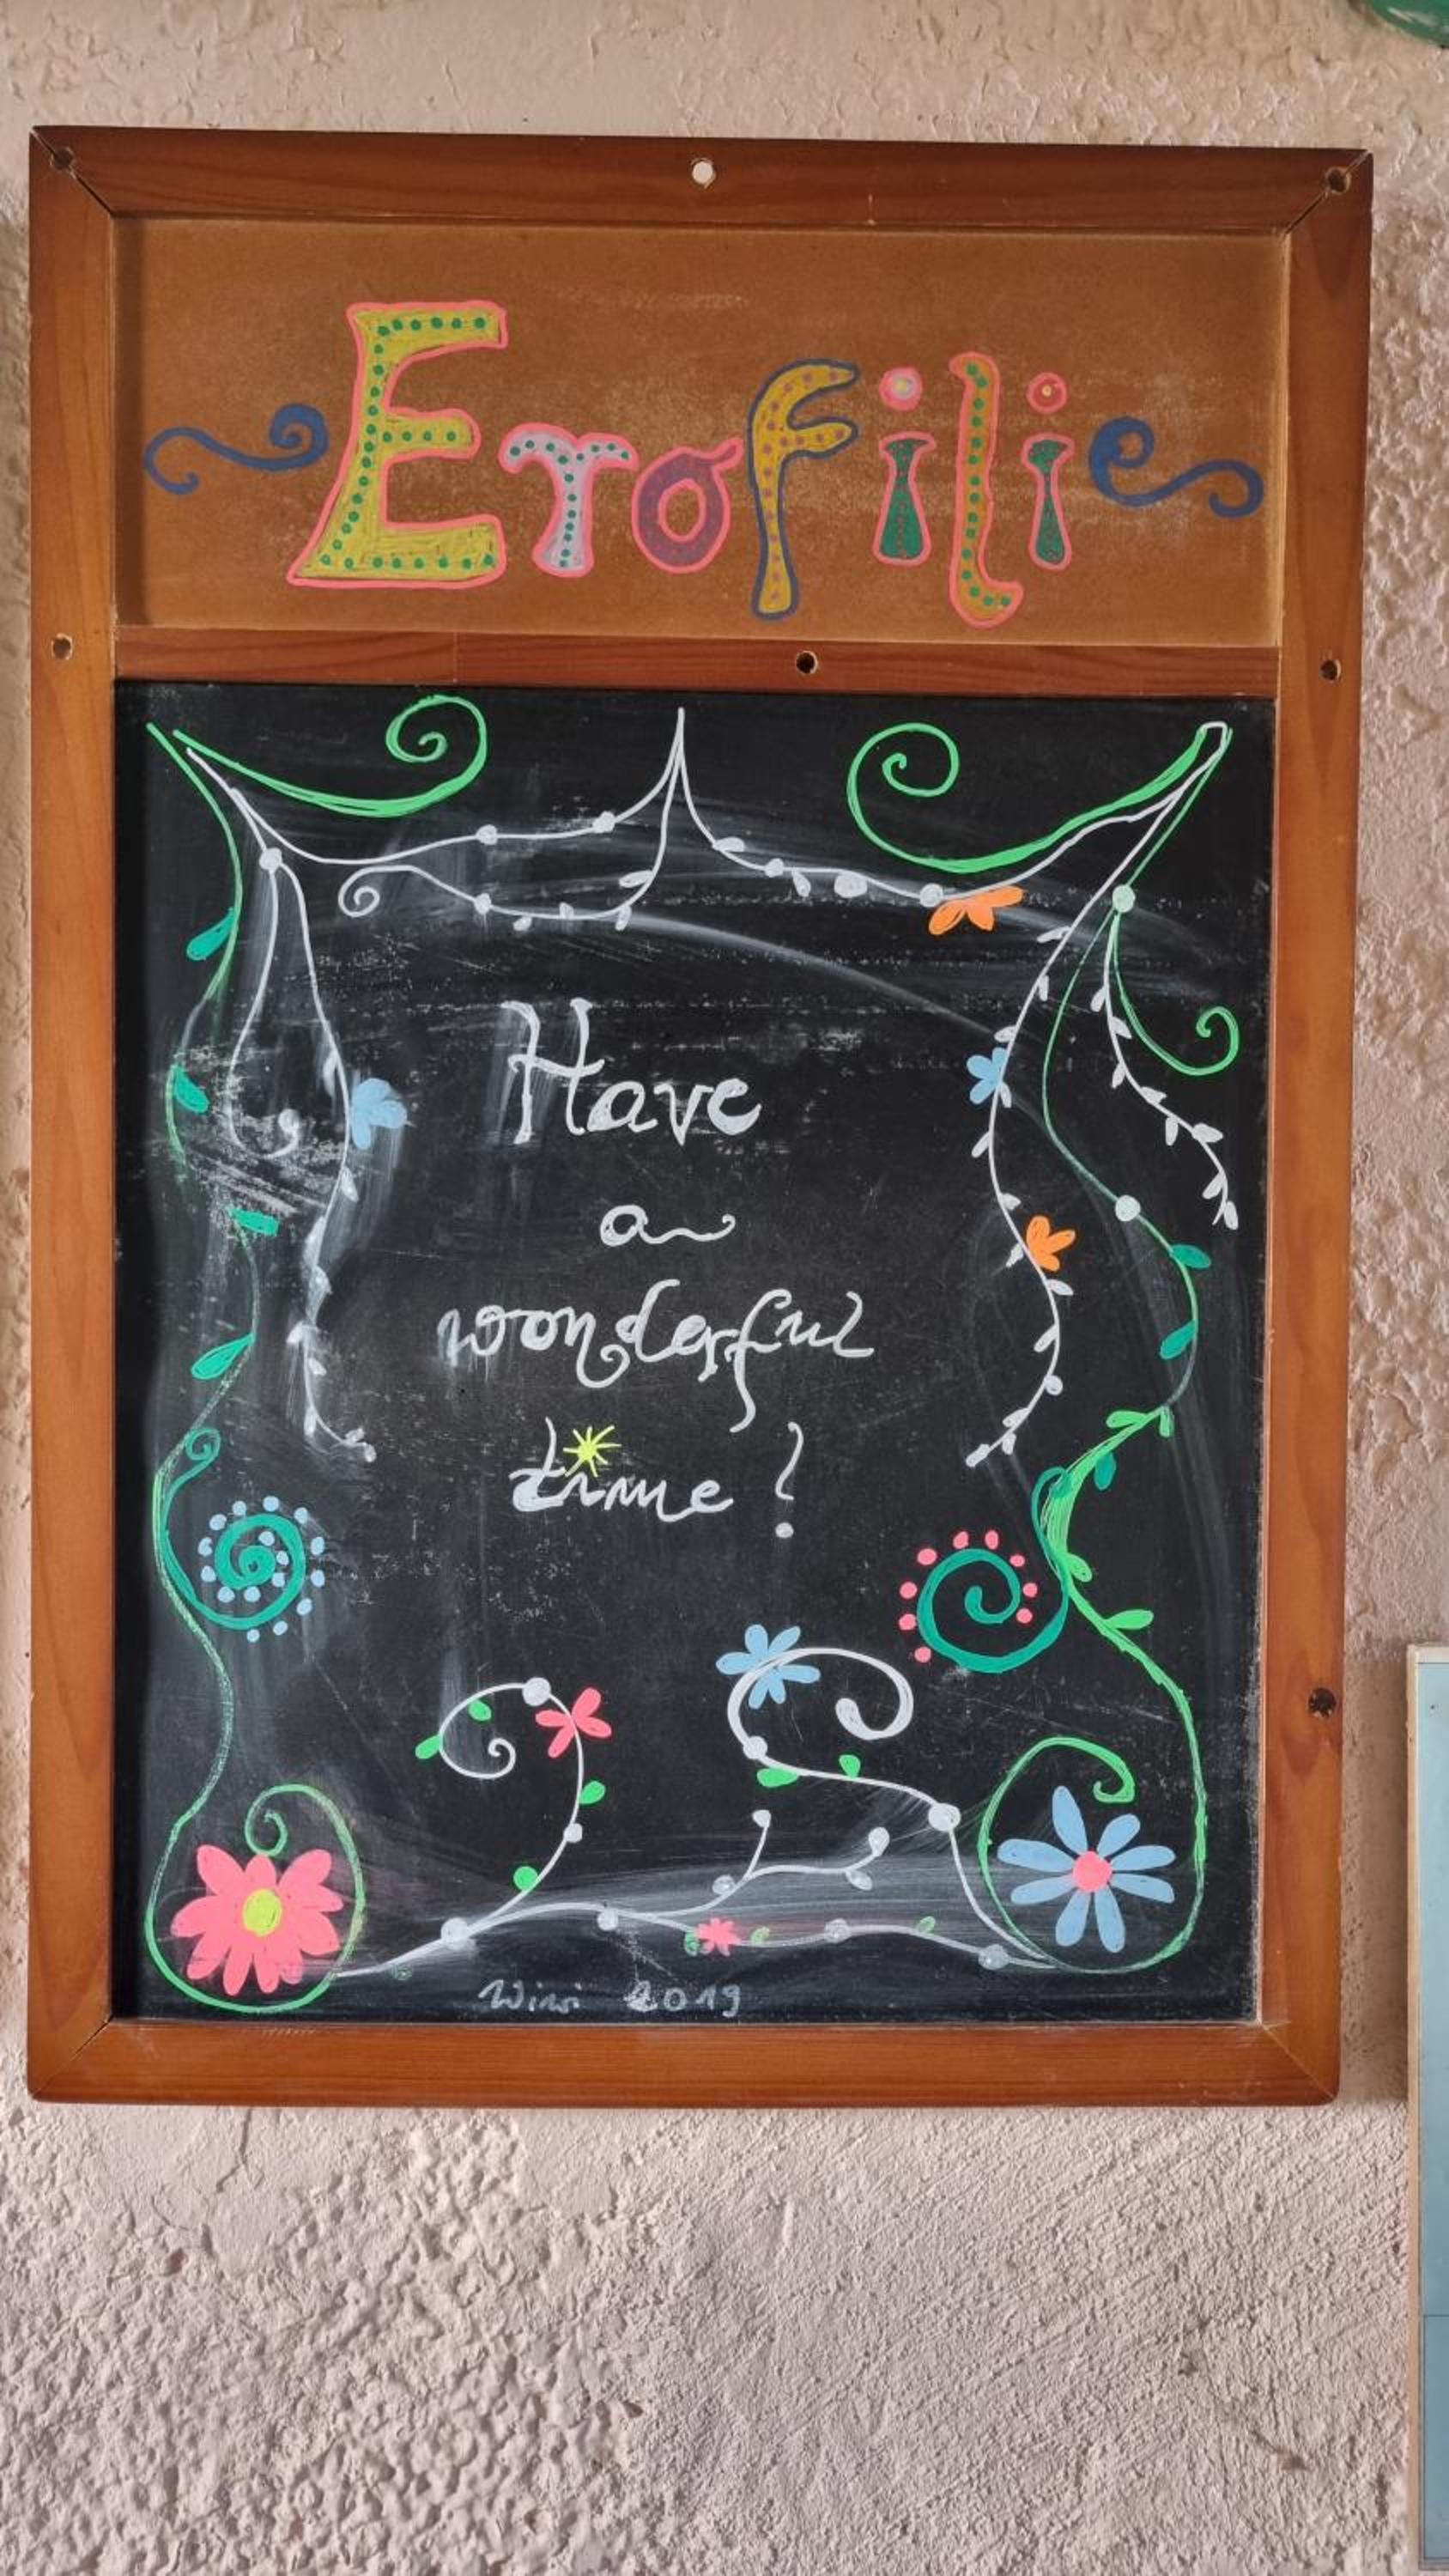 Erofili
Have
a
wonderful
time!
Wiwi 2019